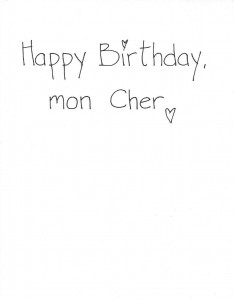 Happy Birthday,
mon Cher